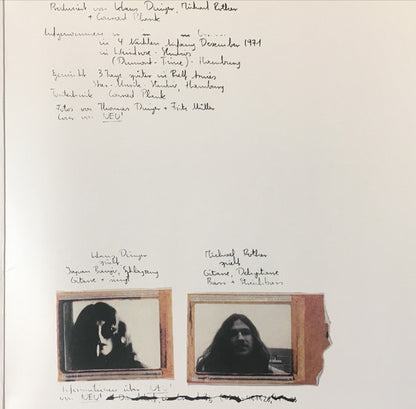 Produziert von Klaus Dinger, Michael Rother
+ Conrad Plank
Aufgenommen
in 4 Nächten Anfang Dezember 1971
in Windrose-Studios
(Dumont-Time) - Hamburg
Gemischt 3 Tage später in Ralf
Star-Musik-Studio, Hamburg
Tontechnik Conrad Plank
Fotos von Thomas Dinger + Fritz Müller
Cover von NEU!
Klaus Dinger
spielt
Japan Banjo, Schlagzeug
Gitarre + singt
Michael Rother
spielt
Gitarre, Deh
Bass + Streichbass
Informationen über NEU!
von NEU!